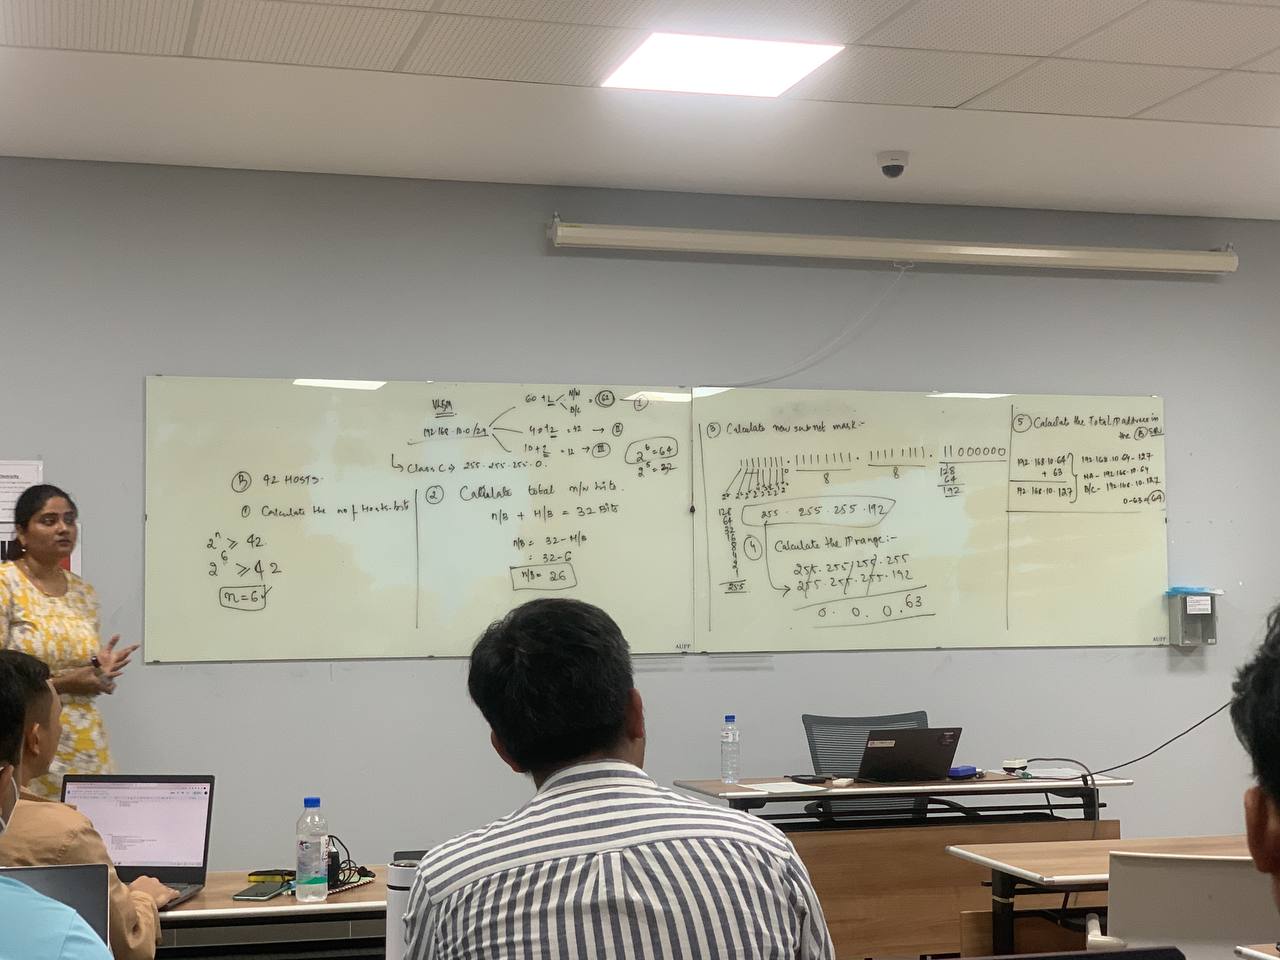 VLSM
192.168.10.0/24
60+2
N/W
B/C
= 62
I
40+2 = 42 → II
10+2 = 12 → III
2^6 = 64
2^5 = 32
Class C → 255.255.255.0.
B 42 HOSTS.
① Calculate the no of Hosts bits
2^n ⩾ 42
2^6 ⩾ 42
n = 6
② Calculate total n/w bits.
n/B + H/B = 32 Bits
n/B = 32 - H/B
= 32 - 6
n/B = 26
③ Calculate new subnet mask:-
11111111.11111111.11111111.11000000
8 8
128
64
192
128
64
32
16
8
4
2
1
255
255.255.255.192
④ Calculate the IP range:-
255.255.255.255
255.255.255.192
0.0.0.63
⑤ Calculate the Total IP address in
the B
192.168.10.64
+ 63
192.168.10.127
192.168.10.64-127
NA - 192.168.10.64
B/C - 192.168.10.127
0-63 = 64
AUPP
AUPP